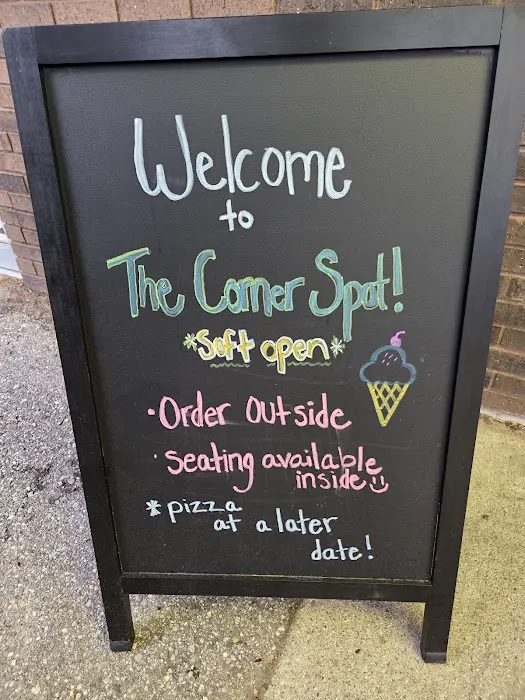 Welcome
to
The Corner Spot!
*Soft open*
• Order Outside
• Seating available
inside :)
* pizza
at a later
date!